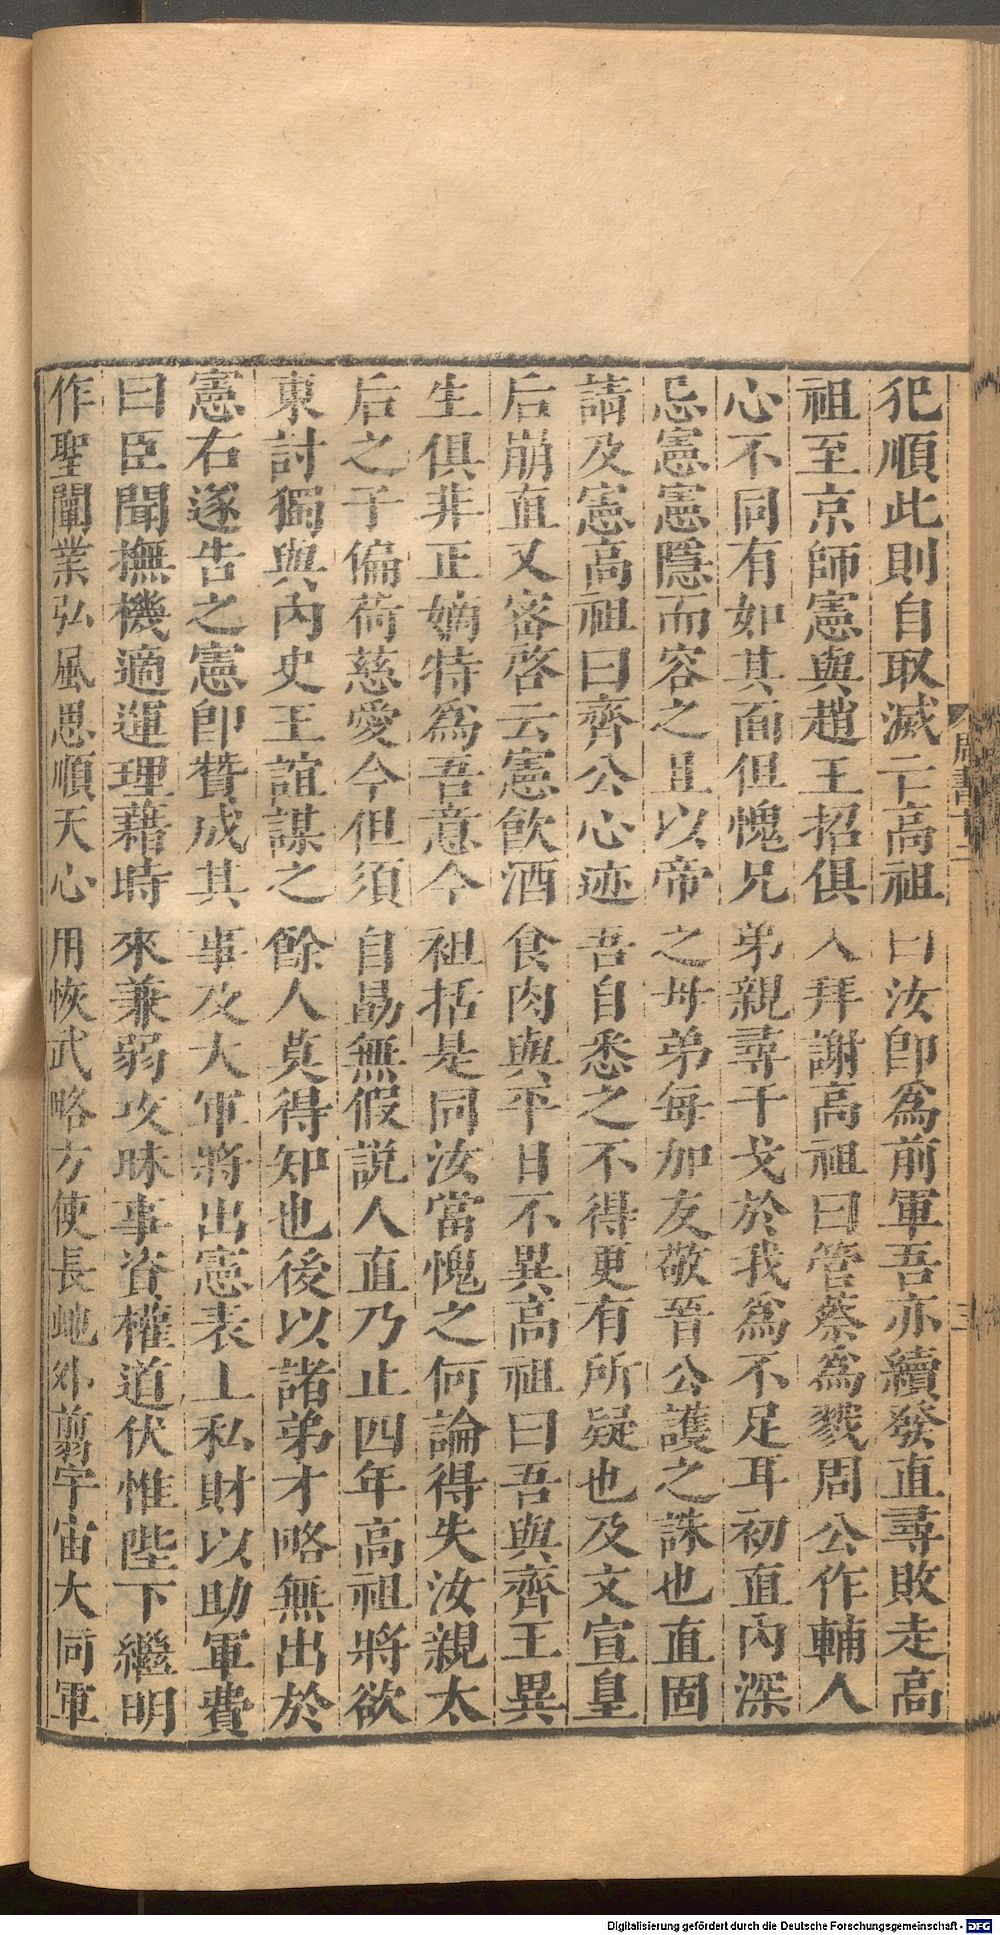 犯順此則自取滅亡高祖曰汝卽爲前軍吾亦續發直尋敗走高
祖至京師憲與趙王招俱入拜謝高祖曰管蔡爲戮周公作輔人
心不同有如其面但愧兄弟親尋干戈於我爲不足耳初直內深
忌憲憲隱而容之且以帝之母弟每加友敬晉公護之誅也直固
請及憲高祖曰齊公心迹吾自悉之不得更有所疑也及文宣皇
后崩直又密啓云憲飮酒食肉與平日不異高祖曰吾與齊王異
生俱非正嫡特爲吾意今祖括是同汝當愧之何論得失汝親太
后之子偏荷慈愛今但須自勗無假說人直乃止四年高祖將欲
東討獨與內史王誼謀之餘人莫得知也後以諸弟才略無出於
憲右遂告之憲卽贊成其事及大軍將出憲表上私財以助軍費
曰臣聞撫機適運理藉時來兼弱攻昧事資權道伏惟陛下繼明
作聖闡業弘風思順天心用恢武略方使長虵外翦宇宙大同軍
周書
三
Digitalisierung gefördert durch die Deutsche Forschungsgemeinschaft - DFG